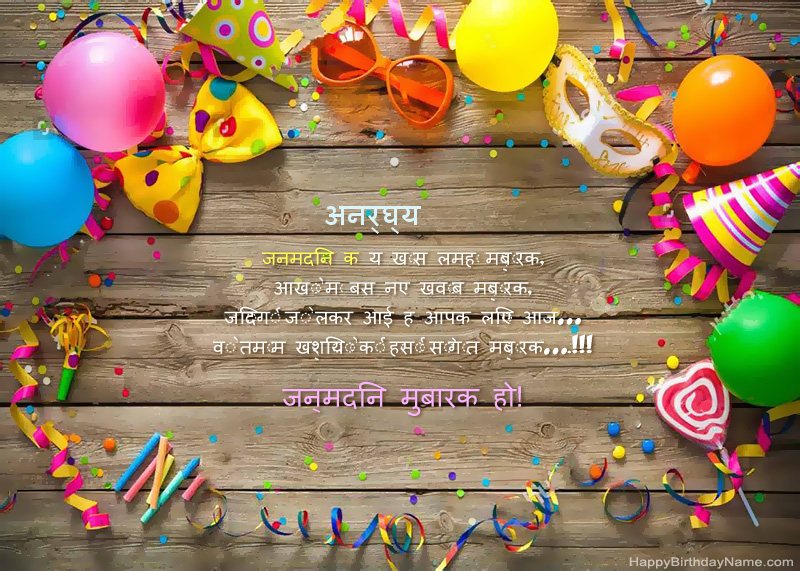 अनर्घ्य
जनमदिन क य खास लमहा मुबारक,
आंखों में बसे नए ख्वाब मुबारक,
जिंदगी जो लेकर आई है आपके लिए आज...
वो तमाम खुशियों की हंसीं सौगात मुबारक...!!!
जन्मदिन मुबारक हो!
HappyBirthdayName.com